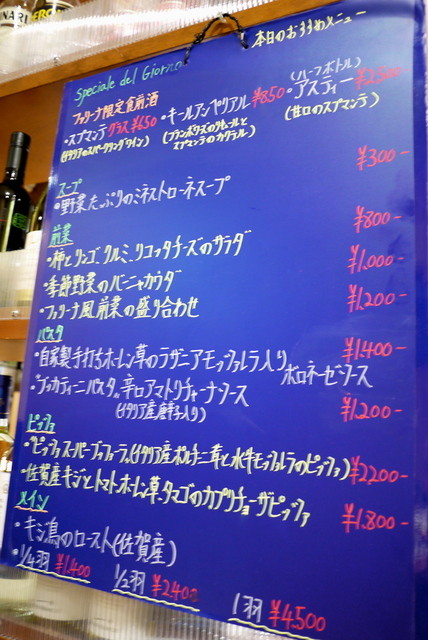 本日のおすすめメニュー
Speciale del Giorno
ファリーナ限定食前酒
・スプマンテ グラス ¥650
(イタリアのスパークリングワイン)
・キールアンペリアル ¥850
(フランボワーズのリキュールと
スプマンテのカクテル)
(ハーフボトル)
・アスティー ¥2,500-
(甘口のスプマンテ)
スープ
・野菜たっぷりのミネストローネスープ ¥300-
前菜
・柿とリンゴ、クルミ、リコッタチーズのサラダ ¥800-
・季節野菜のバーニャカウダ ¥1,000-
・ファリーナ風前菜の盛り合わせ ¥1,200-
パスタ
・自家製手打ちホーレン草のラザニアモッツァレラ入り ¥1,400-
ボロネーゼソース
・"ブッカティーニパスタ"辛口アマトリチャーナソース ¥1,200-
(イタリア産唐辛子入り)
ピッツァ
・"ピッツァスーパーブッファーラ"(イタリア産ポルチーニ茸と水牛モッツァレラのピッツァ) ¥2200-
・佐賀産キジとトマト、ホーレン草、タマゴのカプリチョーザピッツァ ¥1.800-
メイン
・キジ鳥のロースト(佐賀産)
・1/4羽 ¥1.400 1/2羽 ¥2400- 1羽 ¥4,500